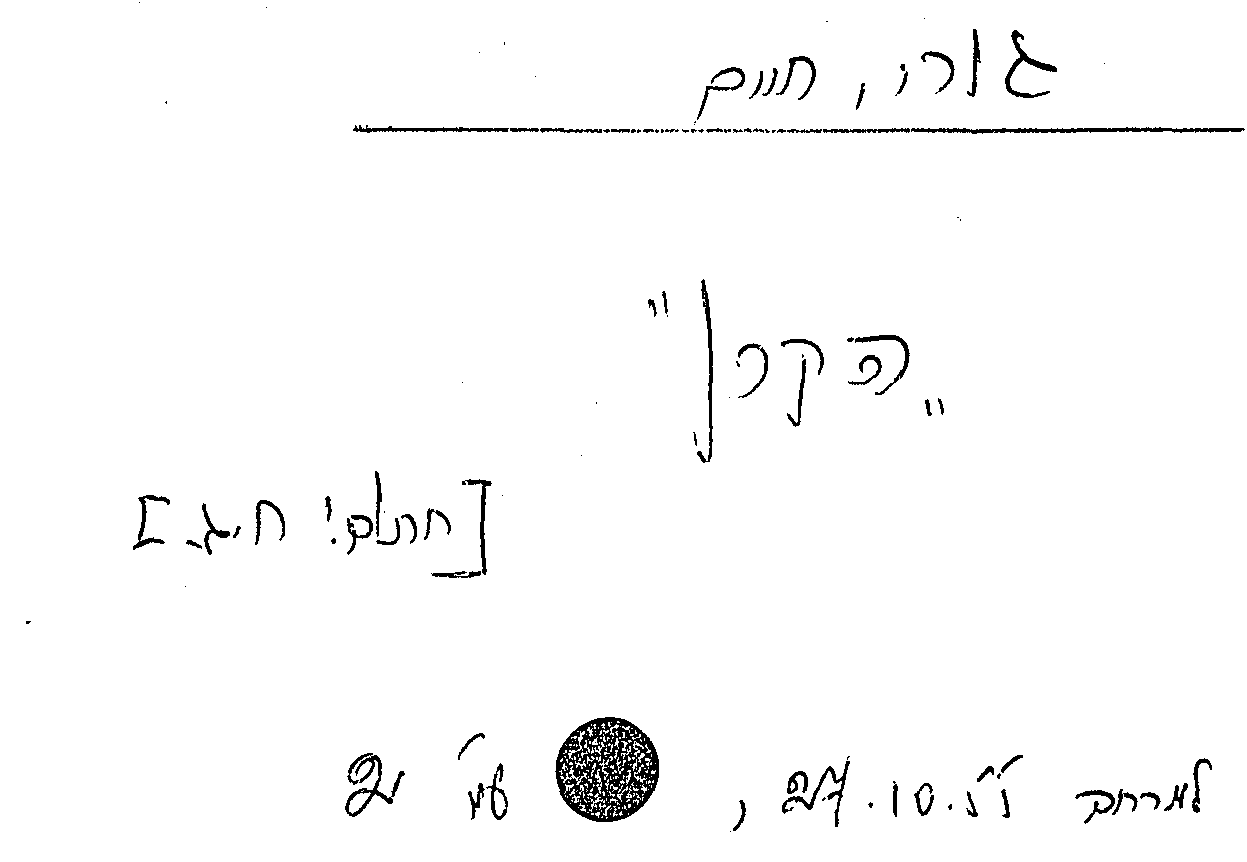 גורי, חיים
„הקרן"
[חתום! ח.ג.]
למרחב 27.10.55, עמ' 2